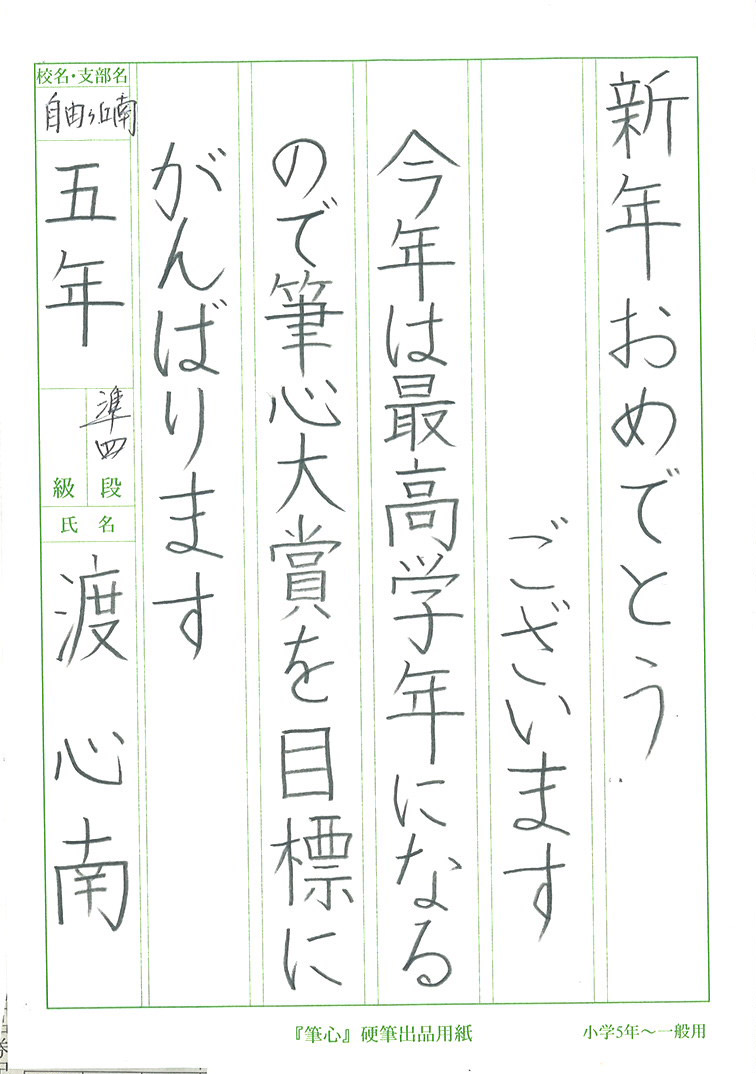 新年おめでとう
ございます
今年は最高学年になる
ので筆心大賞を目標に
がんばります
校名・支部名
自由ヶ丘南
五年
準四
段
級
氏名
渡心南
『筆心』硬筆出品用紙
小学5年～一般用